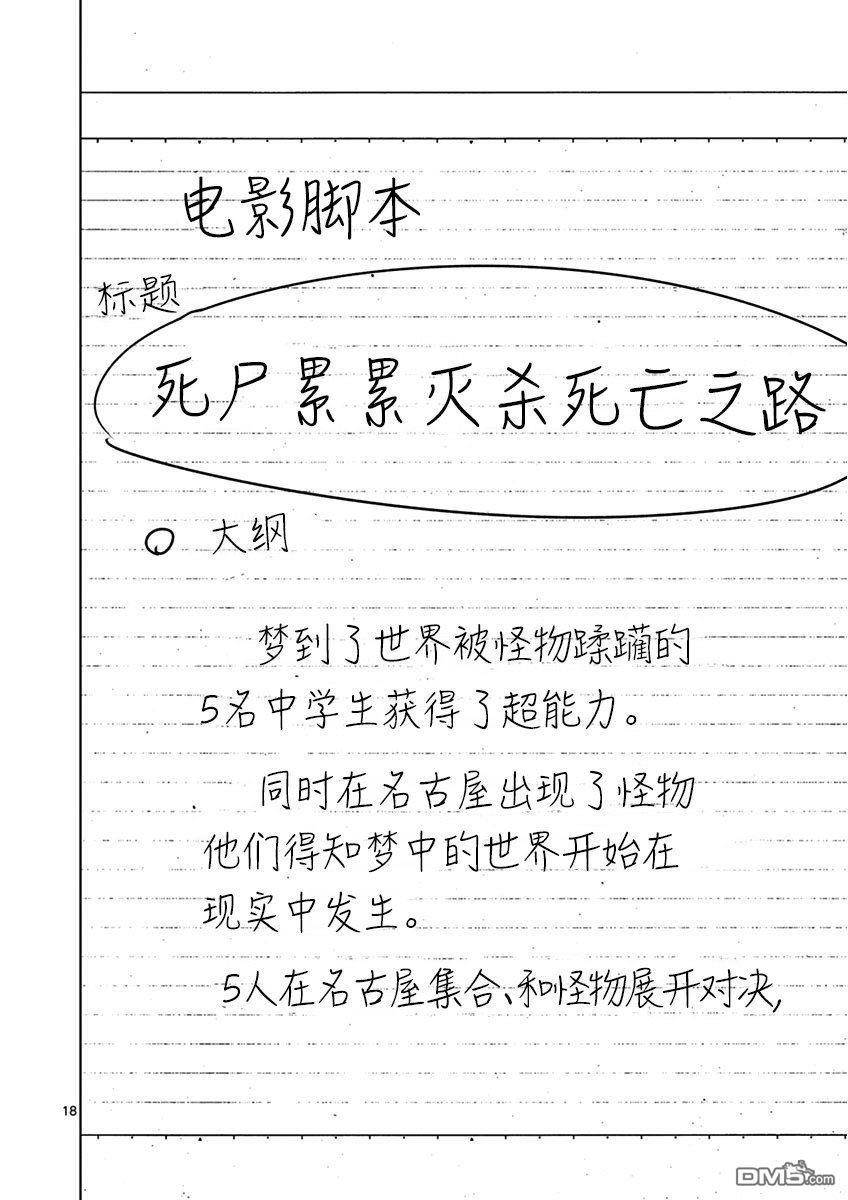 电影脚本
标题
死尸累累灭杀死亡之路
大纲
梦到了世界被怪物蹂躏的
5名中学生获得了超能力。
同时在名古屋出现了怪物
他们得知梦中的世界开始在
现实中发生。
5人在名古屋集合、和怪物展开对决,
18
DM5.com